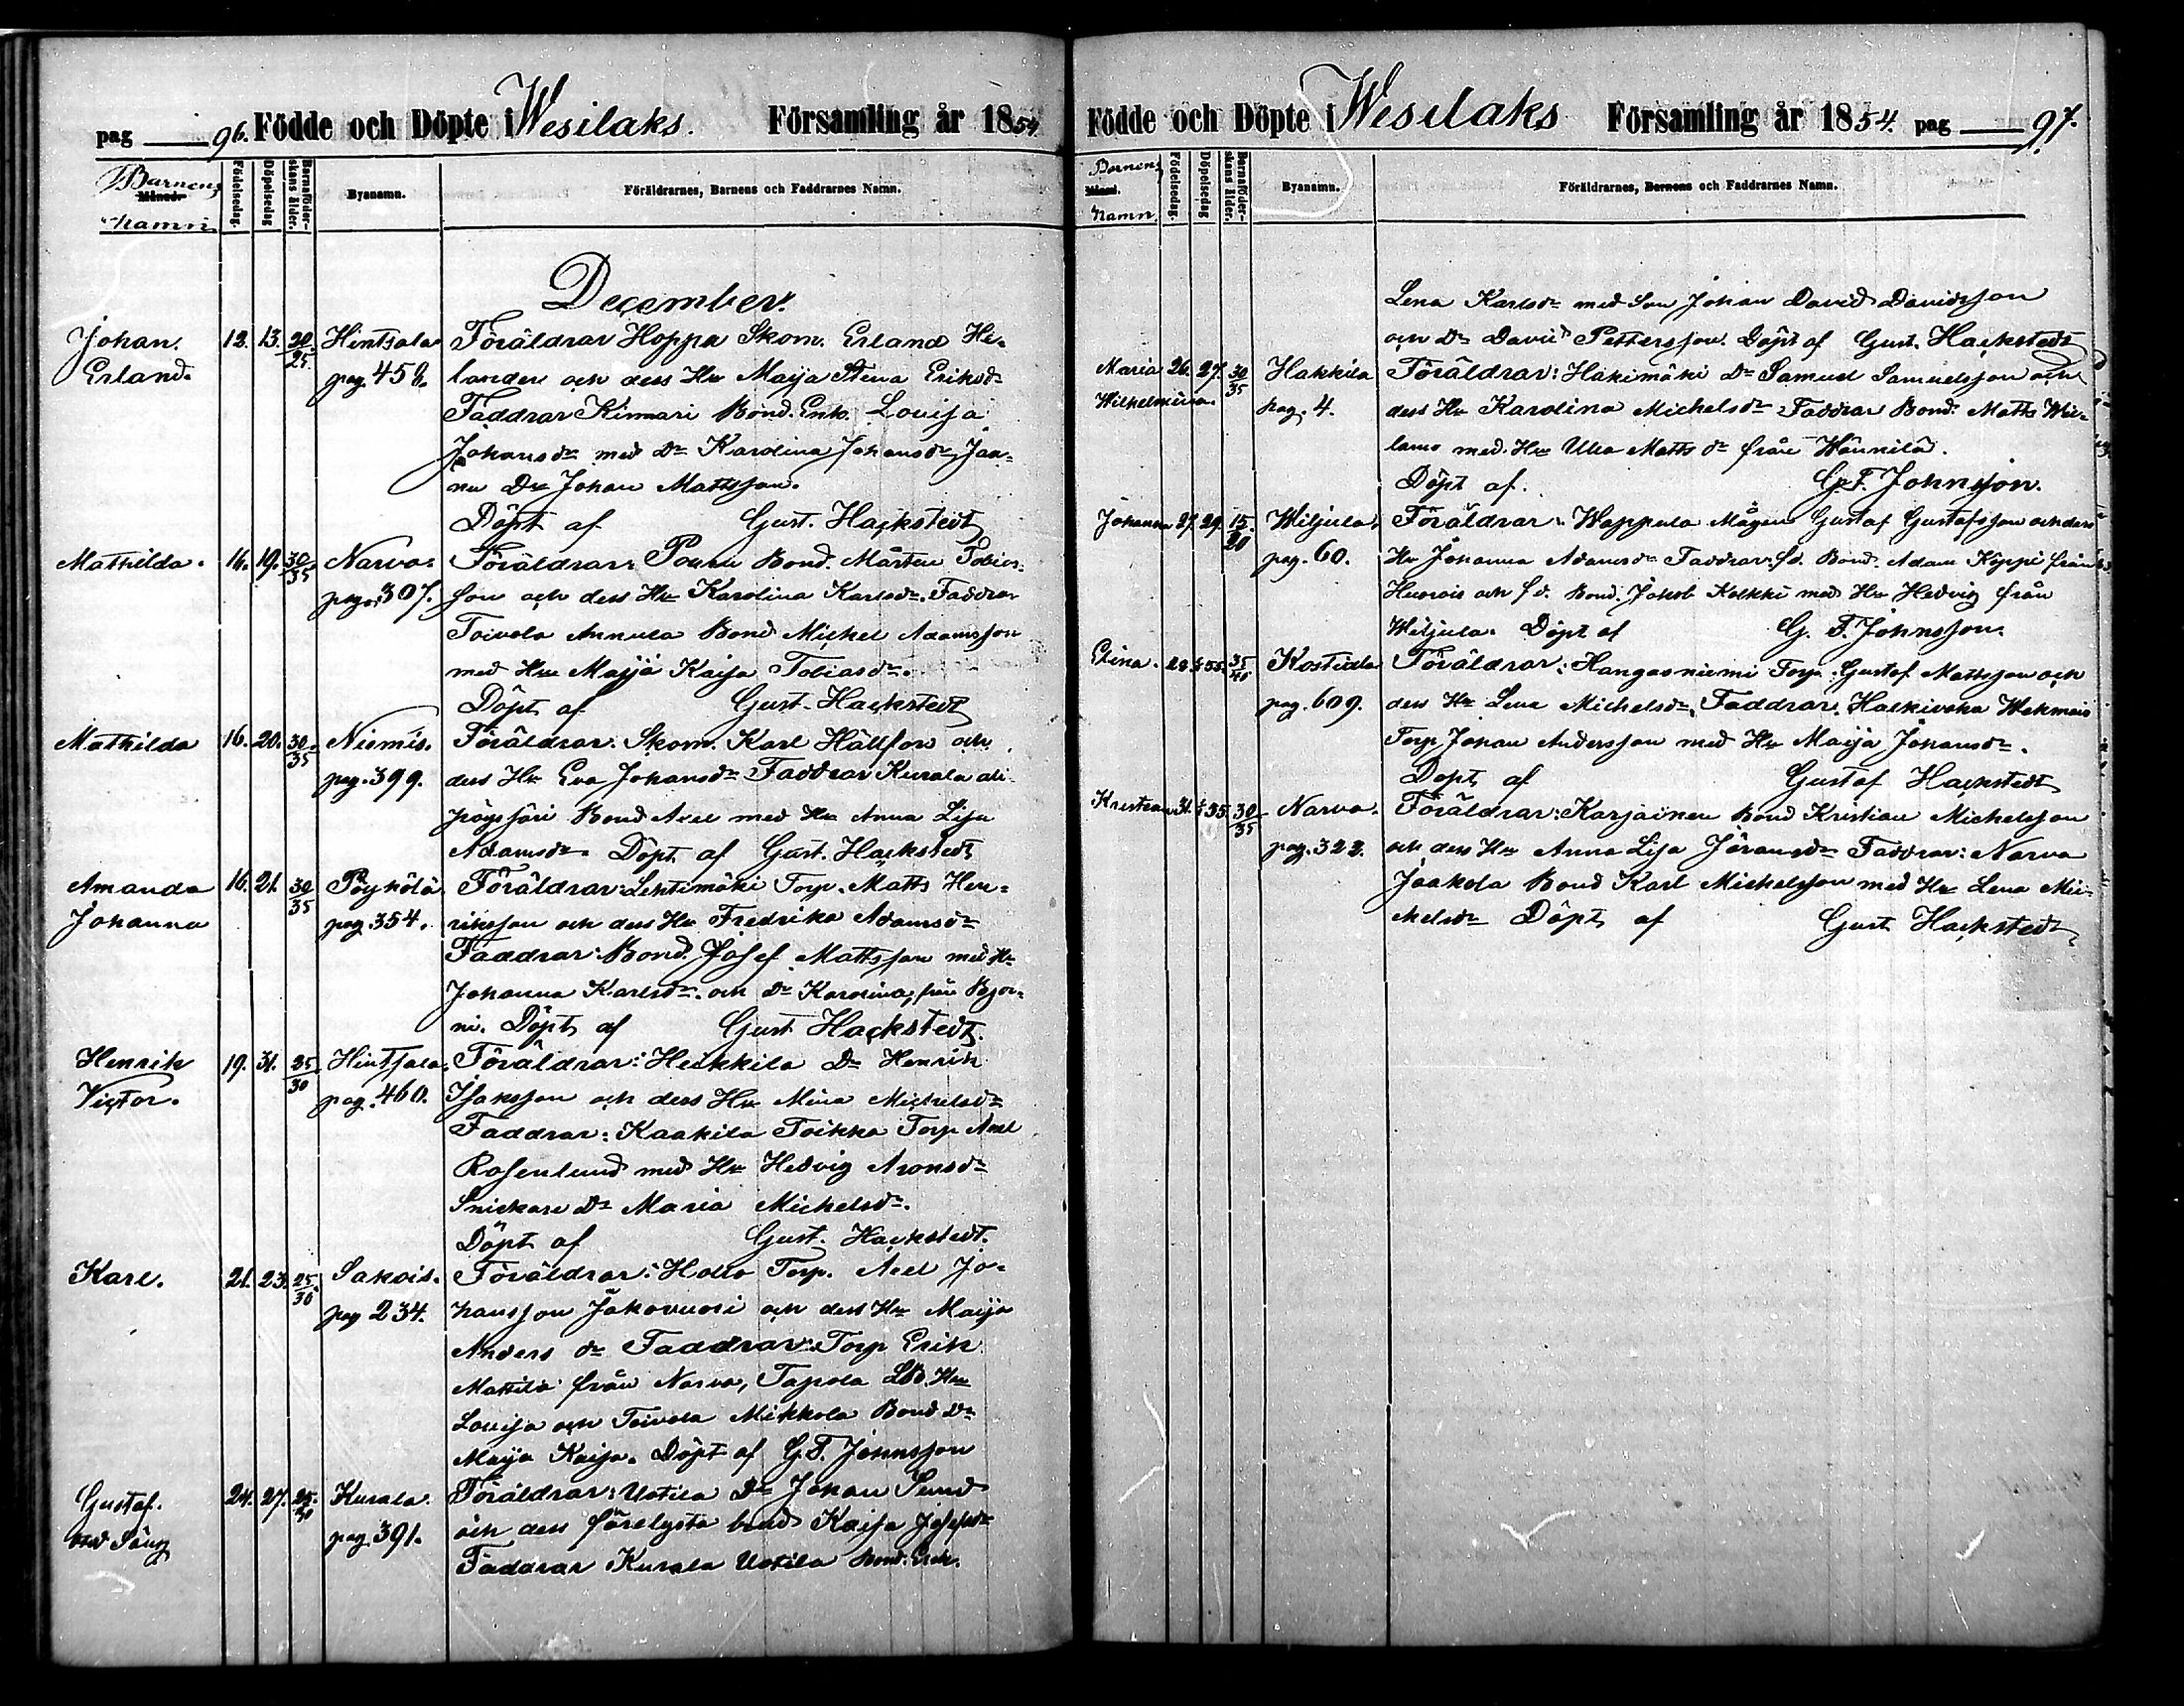 pag 96. Födde och Döpte i Wesilaks. Församling år 1854
Barnens Månad. Namn
Födelsedag.
Döpelsedag
Barnaföder-skans ålder.
Byanamn.
Föräldrarnes, Barnens och Faddrarnes Namn.
December.
Johan 12. 13. 20/25. Hintsala Föräldrar Hoppa Skom. Erland He-
Erland. pag. 458. lander och dess Hu Maija Stina Eriksdr
Faddrar Kinnari Bond. Enk. Lovisa
Johansdr med Dr Karolina Johansdr, Jaa-
nu Dr Johan Mattsson.
Döpt af Gust. Hackstedt
Mathilda. 16. 19. 30/35 Narva. Föräldrar: Bond. Mårten Tobias-
pag. 307. son och dess Hu Karolina Karlsdr. Faddrar
Toivola Annula Bond Michel Adamsson
med Hu Maija Kaisa Tobiasdr.
Döpt af Gust. Hackstedt
Mathilda 16. 20. 30/35 Niemis. Föräldrar: Skom. Karl Hällfors och
pag. 399. dess Hu Eva Johansdr Faddrar Kurala
Bond Axel med Hu Anna Lisa
Adamsdr. Döpt af Gust. Hackstedt
Amanda 16. 21. 30/35 Pöyhölä Föräldrar: Lehtimäki Torp. Matts Hen-
Johanna pag. 354. riksson och dess Hu Fredrika Adamsdr
Faddrar: Bond. Josef Mattsson med Hu
Johanna Karlsdr. och Dr Karolina, från
ni. Döpt af Gust Hackstedt.
Henrik 19. 31. 25/30 Hintsala. Föräldrar: Heikkilä Dr Henrik
Victor. pag. 460. Isaksson och dess Hu Mina Michelsdr
Faddrar: Kaakila Toikka Torp Axel
Rosenlund med Hu Hedvig Aronsdr
Snickare Dr Maria Michelsdr.
Döpt af Gust. Hackstedt.
Karl. 21. 23. 25/30 Sakois. Föräldrar: Hollo Torp. Axel Jo-
pag 234. hansson Jäkovuori och dess Hu Maija
Anders dr Faddrar: Torp Erik
Mattila från Narva, Tapola Hu
Lovisa och Toivola Mikkola Bond Dr
Maija Kaisa. Döpt af G. F. Johnsson
Gustaf. 24. 27. 25/30 Kurala. Föräldrar: Uotila Dr Johan Sund
pag. 391. och dess Kaisa Josefsdr
Faddrar Kurala Uotila Bond. Erik.
Födde och Döpte i Wesilaks Församling år 1854. pag 97.
Barnens Månad. Namn
Födelsedag.
Döpelsedag
Barnaföder-skans ålder.
Byanamn.
Föräldrarnes, Barnens och Faddrarnes Namn.
Lena Karlsdr med Son Johan David Davidsson
och Dr David Pettersson. Döpt af Gust. Hackstedt
Maria 26. 27. 30/35 Hakkila Föräldrar: Hakimäki Dr Samuel Samuelsson och
Wilhelmina. pag. 4. dess Hu Karolina Michelsdr Faddrar Bond. Matts Wil-
lamo med Hu Ulla Matts dr från Wännilä.
Döpt af. G. F. Johnsson.
Johanna 27. 29. 15/20 Wiljula. Föräldrar: Wappula Mågen Gustaf Gustafsson och dess
pag. 60. Hu Johanna Adamsdr Faddrar: fd. Bond. Adam Köppi från
Huovois och fd. Bond. Jakob Kolkki med Hu Hedvig från
Wiljula. Döpt af G. F. Johnsson.
Elina. 28 35/40 Kostiala Föräldrar: Hangasniemi Torp. Gustaf Mattsson och
pag. 609. dess Hu Lena Michelsdr, Faddrar.
Torp Johan Andersson med Hu Maija Johansdr.
Döpt af Gustaf Hackstedt
Kristian 31. 30/35 Narva. Föräldrar: Karjainen Bond Kristian Michelsson
pag. 322. och dess Hu Anna Lisa Göransdr Faddrar: Narva
Jaakola Bond Karl Michelsson med Hu Lena Mi-
chelsdr Döpt af Gust Hackstedt